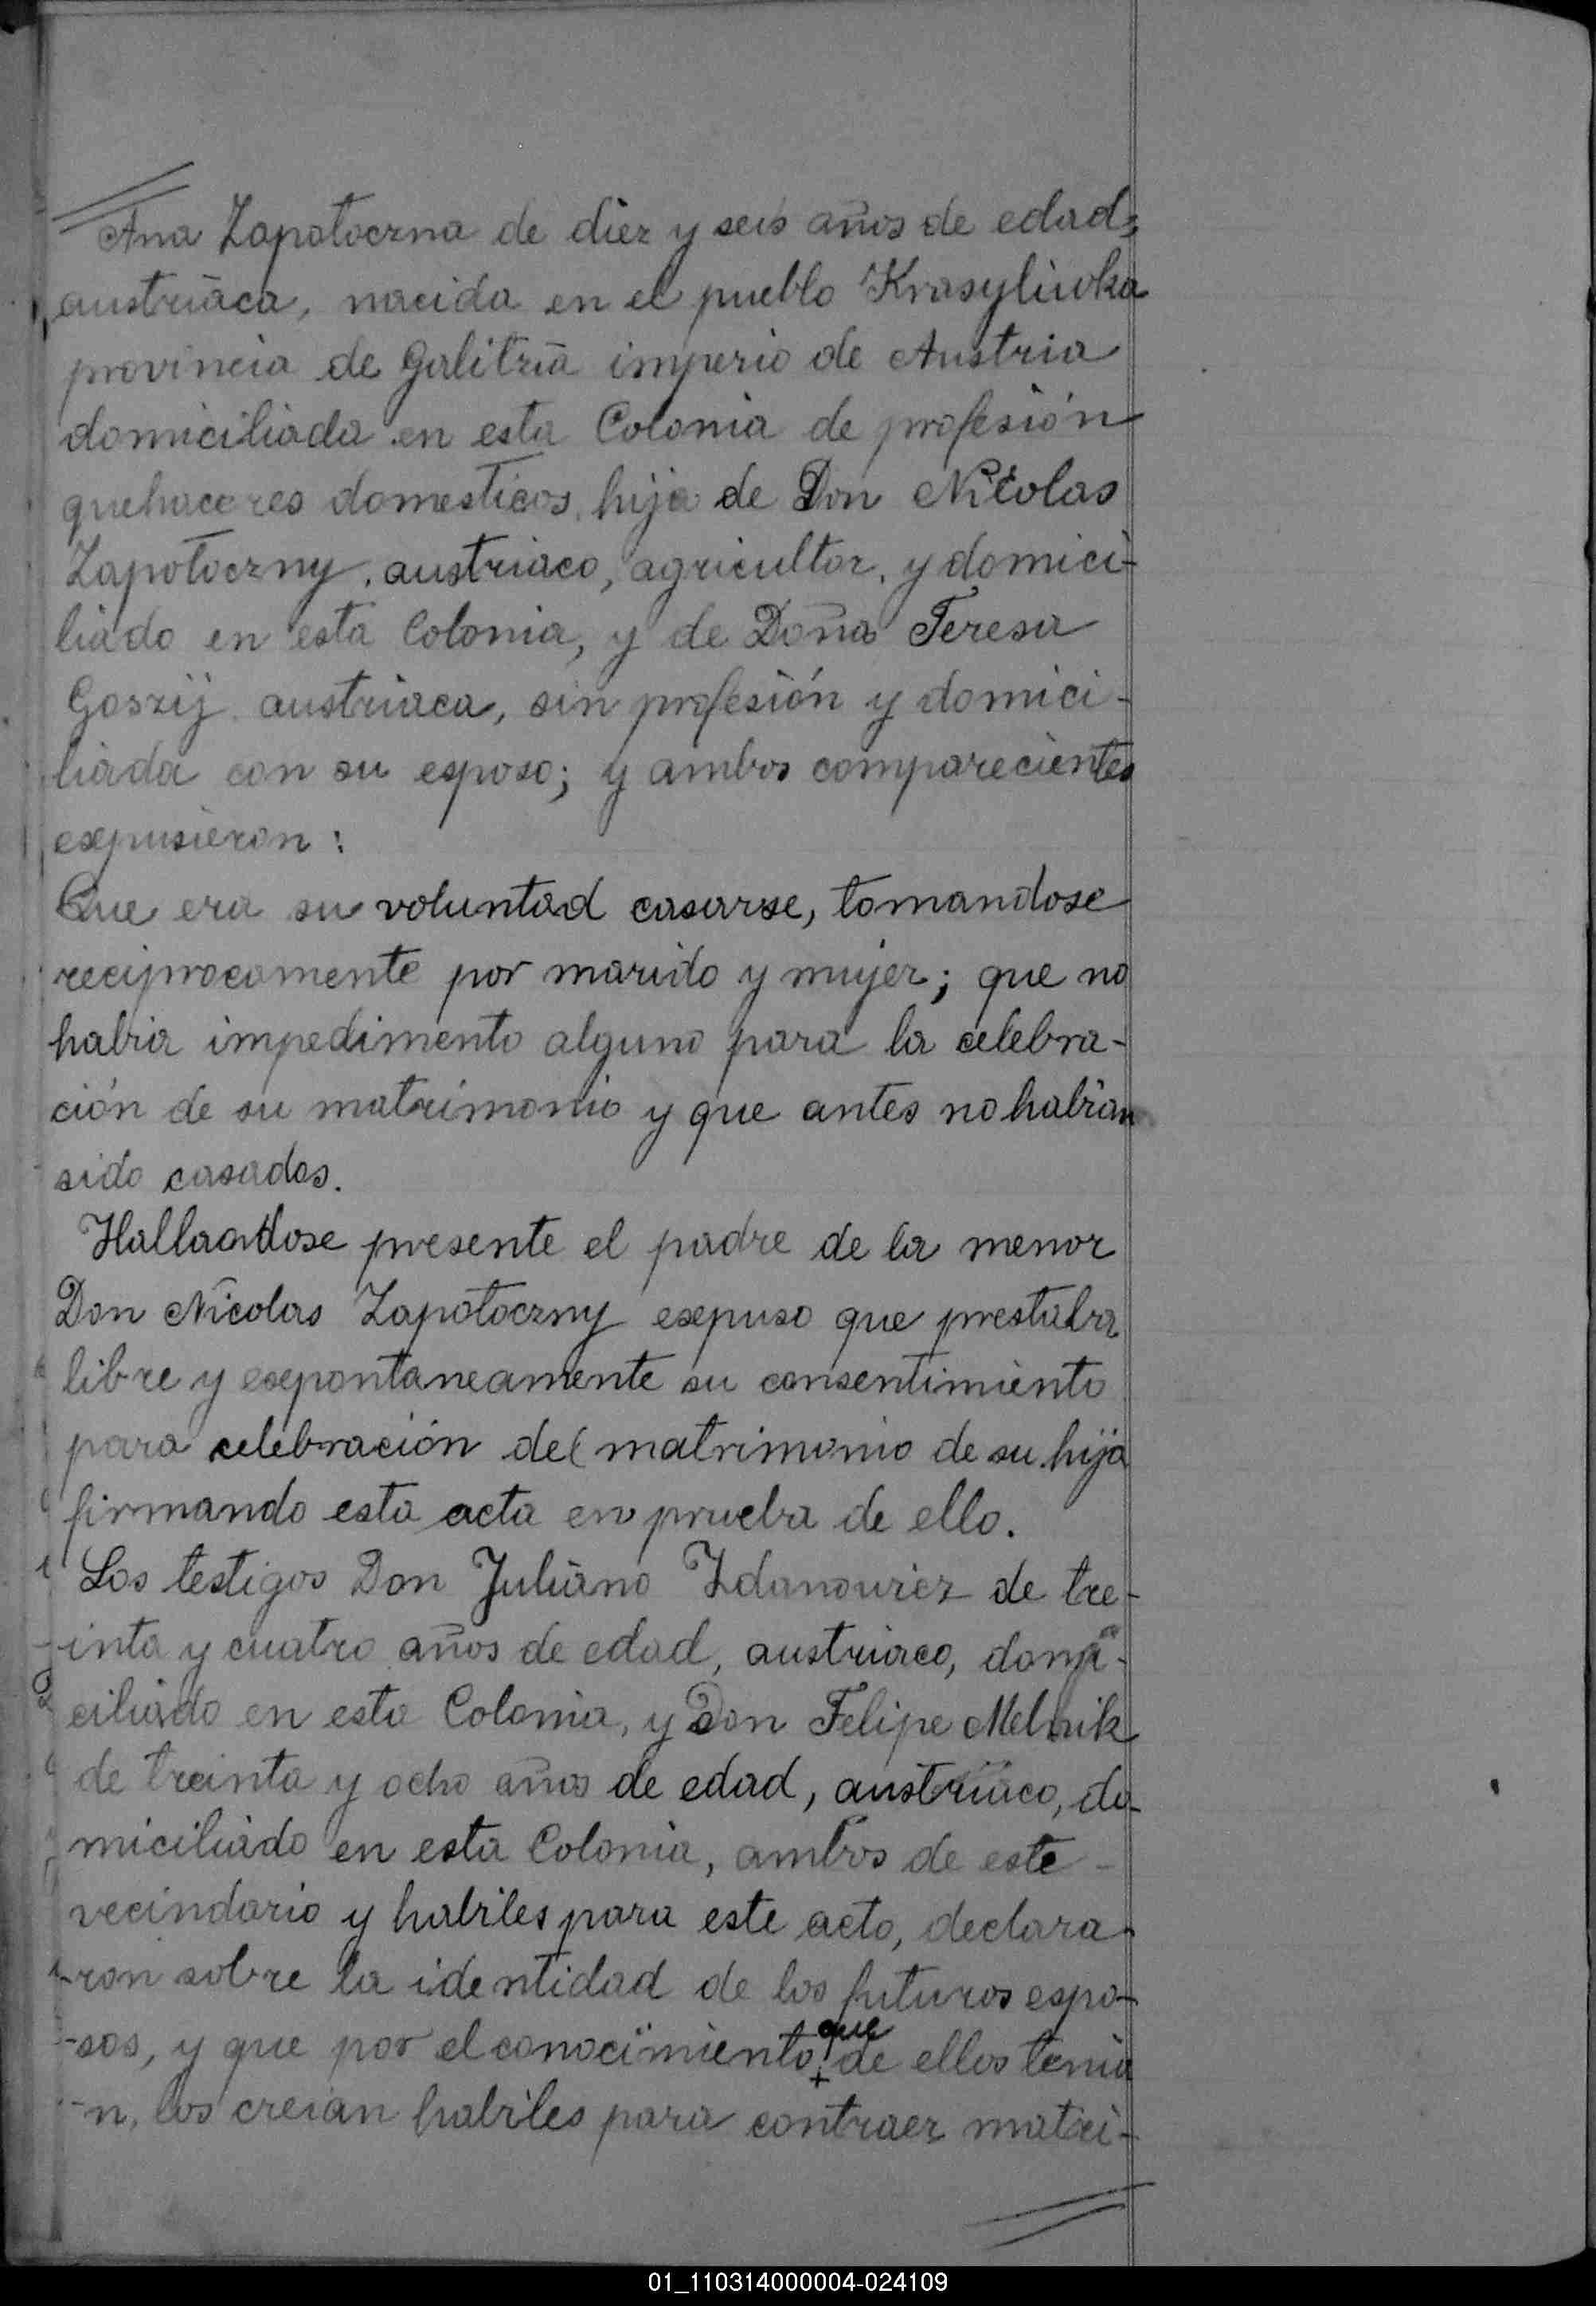 Ana Zapotoczna de diez y seis años de edad,
austriaca, nacida en el pueblo Krasyliwka
provincia de Galitzia imperio de Austria
domiciliada en esta Colonia de profesión
quehaceres domesticos, hija de Don Nicolas
Zapotoczny, austriaco, agricultor, y domici-
liado en esta Colonia, y de Doña Teresa
Goszij austriaca, sin profesión y domici-
liada con su esposo; y ambos comparecientes
expusieron:
Que era su voluntad casarse, tomandose
reciprocamente por marido y mujer; que no
habia impedimento alguno para la celebra-
ción de su matrimonio y que antes no habian
sido casados.
Hallandose presente el padre de la menor
Don Nicolas Zapotoczny expuso que prestaba
libre y expontaneamente su consentimiento
para celebración del matrimonio de su hija
firmando esta acta en prueba de ello.
Los testigos Don Juliano Zdanowicz de tre-
inta y cuatro años de edad, austriaco, domi-
ciliado en esta Colonia, y Don Felipe Melnik
de treinta y ocho años de edad, austriaco, do-
miciliado en esta Colonia, ambos de este -
vecindario y habiles para este acto, declara-
-ron sobre la identidad de los futuros espo-
-sos, y que por el conocimiento que de ellos tenia
-n, los creian habiles para contraer matri-
01_110314000004-024109